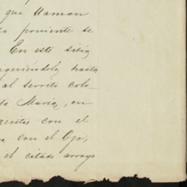 que llaman
poniente de
En este sitio
poniéndole, hasta
al secreto colo
María, en
con el
a con el Ojo,
el citado arroyo